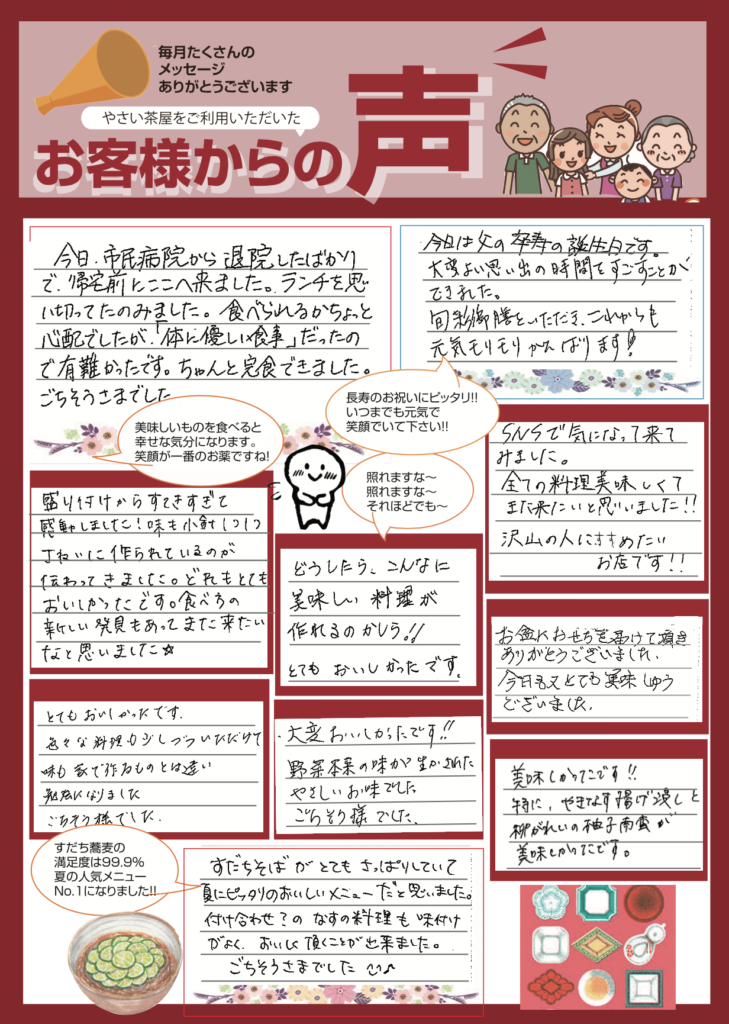 毎月たくさんの
メッセージ
ありがとうございます
やさい茶屋をご利用いただいた
お客様からの声
今日、市民病院から退院したばかり
で、帰宅前にここへ来ました。ランチを思
い切ってたのみました。食べられるかちょっと
心配でしたが、「体に優しい食事」だったの
で有難かったです。ちゃんと完食できました。
ごちそうさまでした
今日は父の卒寿の誕生日です。
大変よい思い出の時間をすごすことが
できました。
旬彩御膳をいただき、これからも
元気モリモリがんばります!
美味しいものを食べると
幸せな気分になります。
笑顔が一番のお薬ですね!
長寿のお祝いにピッタリ!!
いつまでも元気で
笑顔でいて下さい!!
照れますな〜
照れますな〜
それほどでも〜
SNSで気になって来て
みました。
全ての料理美味しくて
また来たいと思いました!!
沢山の人にすすめたい
お店です!!
盛り付けからすてきすぎて
感動しました!味も小鉢1つ1つ
丁ねいに作られているのが
伝わってきました。どれもとても
おいしかったです。食べ方の
新しい発見もあってまた来たい
なと思いました☆
どうしたら、こんなに
美味しい料理が
作れるのかしら!!
とてもおいしかったです。
お盆におせちを届けて頂き
ありがとうございました。
今日も又とても美味しゅう
ございました。
とてもおいしかったです。
色々な料理も少しづついただけて
味も家で作るものとは違い
勉強になりました
ごちそう様でした。
大変おいしかったです!!
野菜本来の味が生かされた
やさしいお味でした
ごちそう様でした。
美味しかったです!!
特に、やきなす揚げ浸しと
柳がれいの柚子南蛮が
美味しかったです。
すだち蕎麦の
満足度は99.9%
夏の人気メニュー
No.1になりました!!
すだちそばがとてもさっぱりしていて
夏にピッタリのおいしいメニューだと思いました。
付け合わせ?のなすの料理も味付け
がよく、おいしく頂くことが出来ました。
ごちそうさまでした